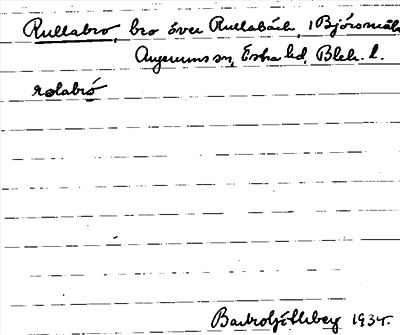 Rullabro, bro över Rullabäck, i Björsmåla
Augerums sn, Östra hd, Blek. l.
rolabró
1934.